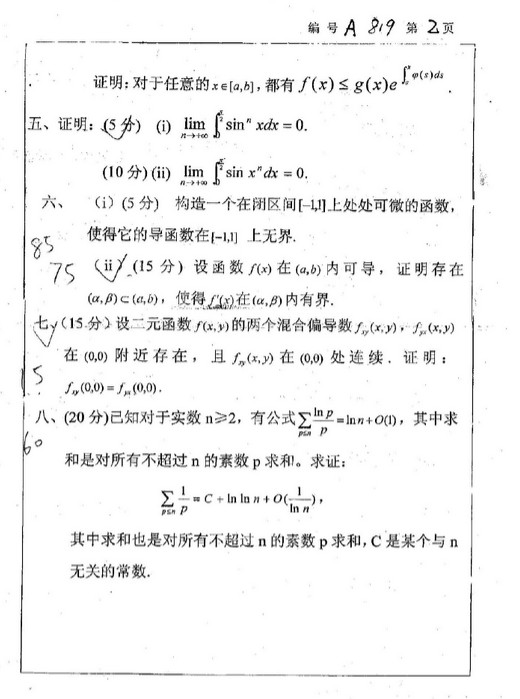 编号 A 819 第 2 页
证明: 对于任意的 x∈[a,b], 都有 f(x) ≤ g(x)e^{∫_x^b φ(s)ds}.
五、证明: (5 分) (i) lim_{n→+∞} ∫_0^{π/2} sin^n xdx = 0.
(10 分) (ii) lim_{n→+∞} ∫_0^{π/2} sin x^n dx = 0.
六、 (i) (5 分) 构造一个在闭区间[-1,1]上处处可微的函数,
使得它的导函数在[-1,1] 上无界.
85
75 (ii) (15 分) 设函数 f(x) 在 (a,b) 内可导, 证明存在
(α,β)⊂(a,b), 使得 f'(x)在(α,β)内有界.
七、(15 分) 设二元函数 f(x,y)的两个混合偏导数 f_{xy}(x,y), f_{yx}(x,y)
在 (0,0) 附近存在, 且 f_{xy}(x,y) 在 (0,0) 处连续. 证明:
15 f_{xy}(0,0) = f_{yx}(0,0).
八、(20 分)已知对于实数 n≥2, 有公式 ∑_{p≤n} ln p/p = ln n + O(1), 其中求
60
和是对所有不超过 n 的素数 p 求和。求证:
∑_{p≤n} 1/p = C + ln ln n + O(1/ln n),
其中求和也是对所有不超过 n 的素数 p 求和, C 是某个与 n
无关的常数.